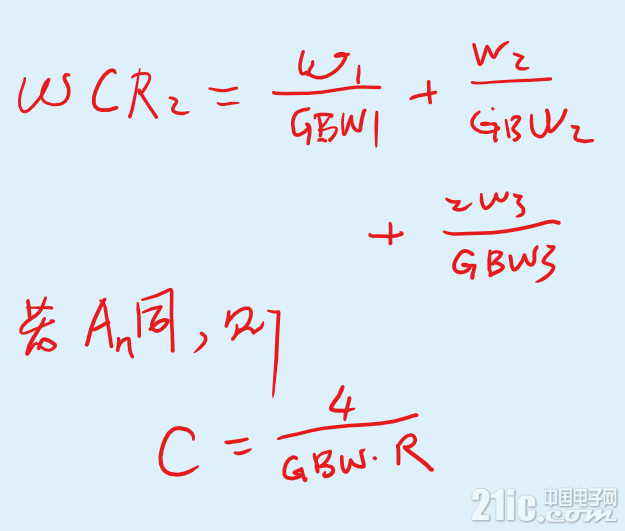 ωCR₂ = ω₁/GBW₁ + W₂/GBW₂
+ 2W₃/GBW₃
若 Aₙ同, 则
C = 4/GBW·R
21ic 中国电子网
.com